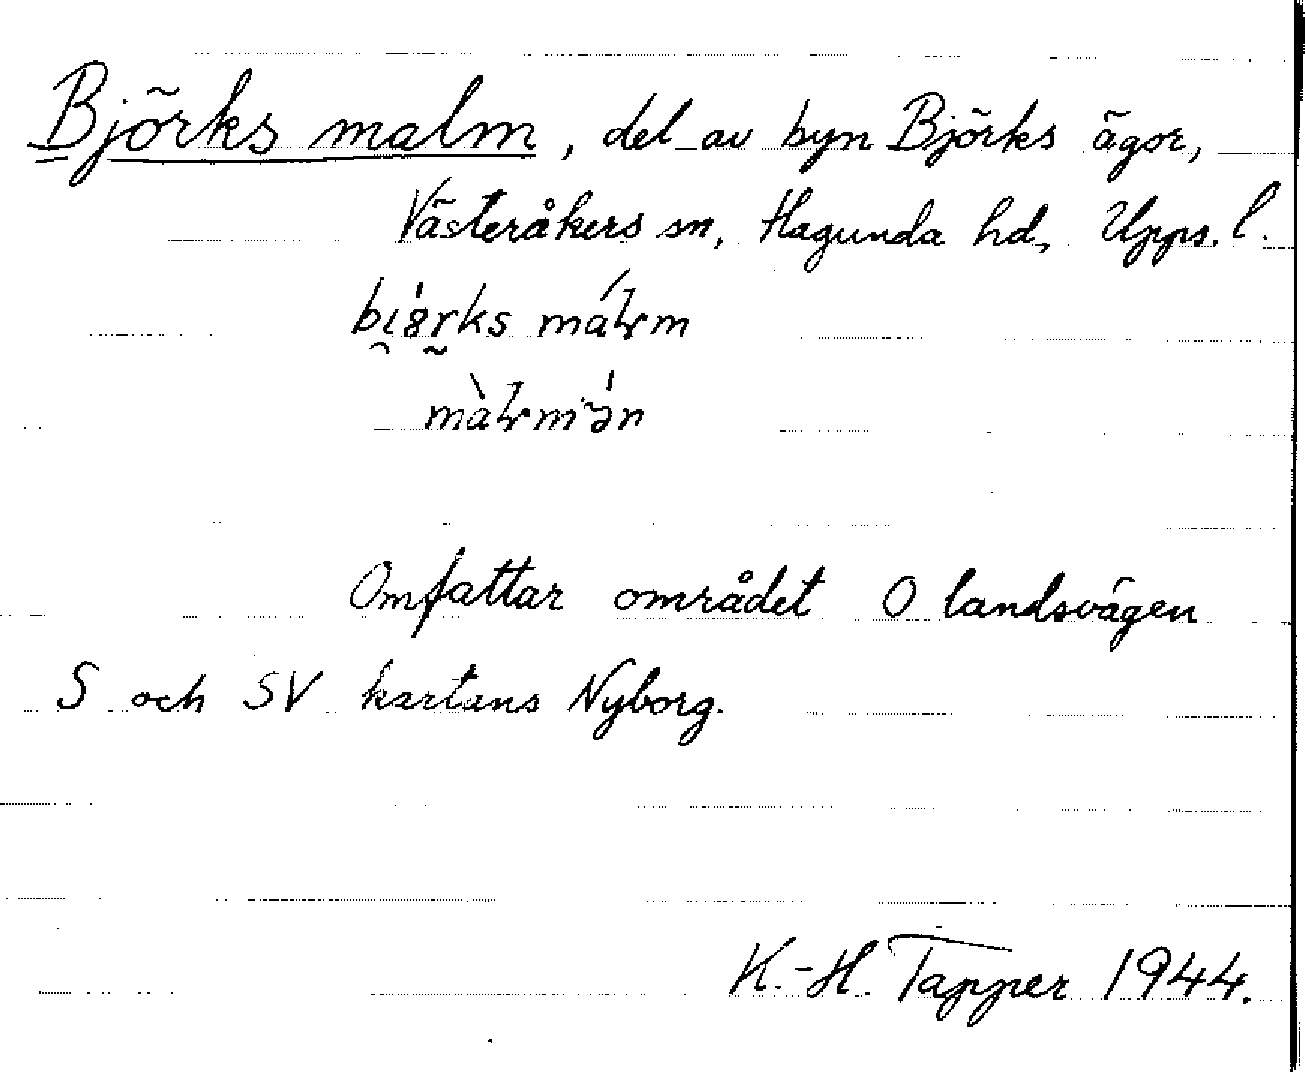 Björks malm, del av byn Björks ägor,
Västeråkers sn, Hagunda hd, Upps. l.
Omfattar området O landsvägen
S och SV kartans Nyborg.
K.-H. Tapper 1944.